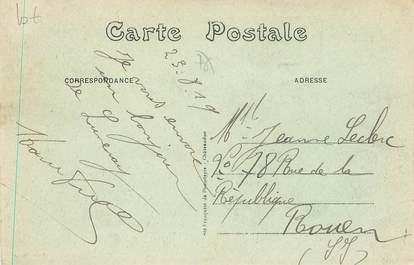 Lot
Carte Postale
CORRESPONDANCE
ADRESSE
29.8.19
Je vous envoie
un bonjour
de Luneray
Mlle Jeanne Leclerc
No 78 Rue de la
République
Rouen
(S I)